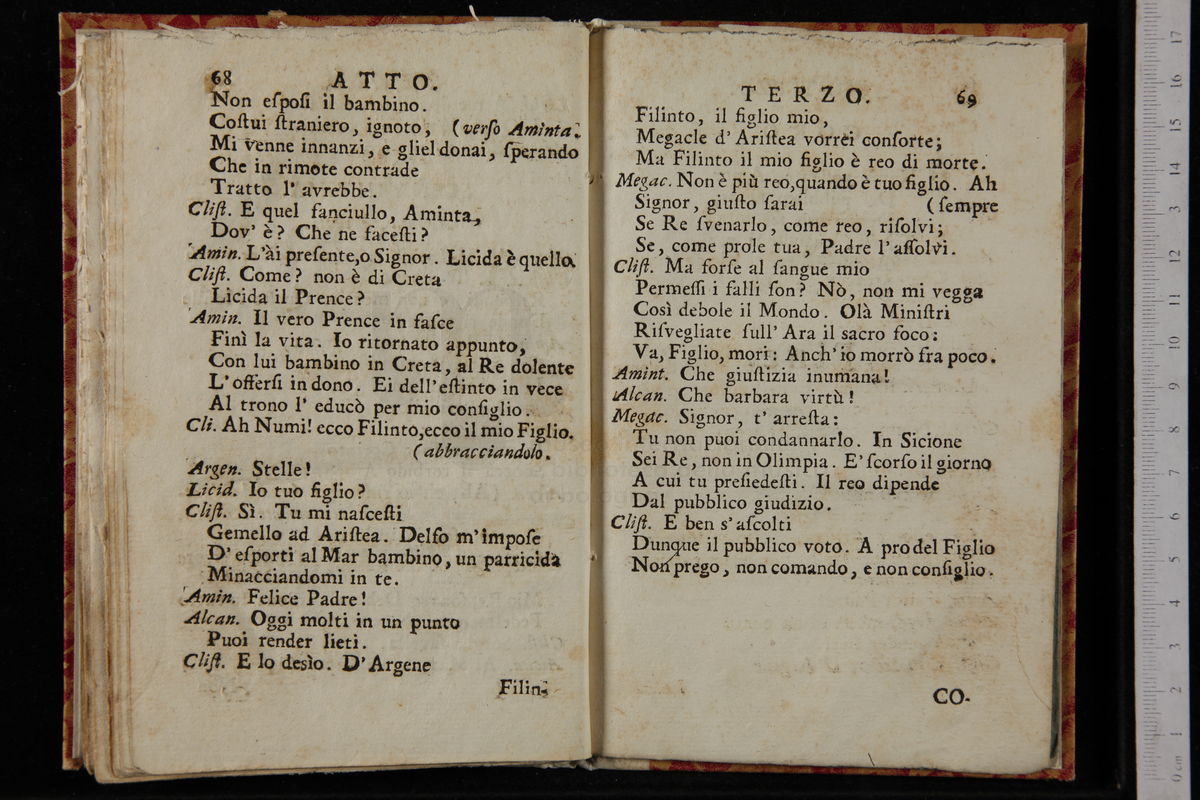 68 ATTO.
Non eſpoſi il bambino.
Coſtui ſtraniero, ignoto, (verſo Aminta.
Mi venne innanzi, e gliel donai, ſperando
Che in rimote contrade
Tratto l' avrebbe.
Cliſt. E quel fanciullo, Aminta,
Dov' è? Che ne faceſti?
Amin. L'ài preſente,o Signor. Licida è quello.
Cliſt. Come? non è di Creta
Licida il Prence?
Amin. Il vero Prence in faſce
Finì la vita. Io ritornato appunto,
Con lui bambino in Creta, al Re dolente
L' offerſi in dono. Ei dell' eſtinto in vece
Al trono l' educò per mio conſiglio.
Cli. Ah Numi! ecco Filinto,ecco il mio Figlio.
(abbracciandolo.
Argen. Stelle!
Licid. Io tuo figlio?
Cliſt. Sì. Tu mi naſceſti
Gemello ad Ariſtea. Delfo m'impoſe
D' eſporti al Mar bambino, un parricida
Minacciandomi in te.
Amin. Felice Padre!
Alcan. Oggi molti in un punto
Puoi render lieti.
Cliſt. E lo desìo. D' Argene
Filin-
TERZO. 69
Filinto, il figlio mio,
Megacle d' Ariſtea vorrei conſorte;
Ma Filinto il mio figlio è reo di morte.
Megac. Non è più reo,quando è tuo figlio. Ah
Signor, giuſto ſarai (ſempre
Se Re ſvenarlo, come reo, riſolvi;
Se, come prole tua, Padre l' aſſolvi.
Cliſt. Ma forſe al ſangue mio
Permeſſi i falli ſon? Nò, non mi vegga
Così debole il Mondo. Olà Miniſtri
Riſvegliate ſull' Ara il sacro foco:
Va, Figlio, mori: Anch' io morrò fra poco.
Amint. Che giuſtizia inumana!
Alcan. Che barbara virtù!
Megac. Signor, t' arreſta:
Tu non puoi condannarlo. In Sicione
Sei Re, non in Olimpia. E' ſcorſo il giorno
A cui tu preſiedeſti. Il reo dipende
Dal pubblico giudizio.
Cliſt. E ben s' aſcolti
Dunque il pubblico voto. A pro del Figlio
Non prego, non comando, e non conſiglio.
CO-